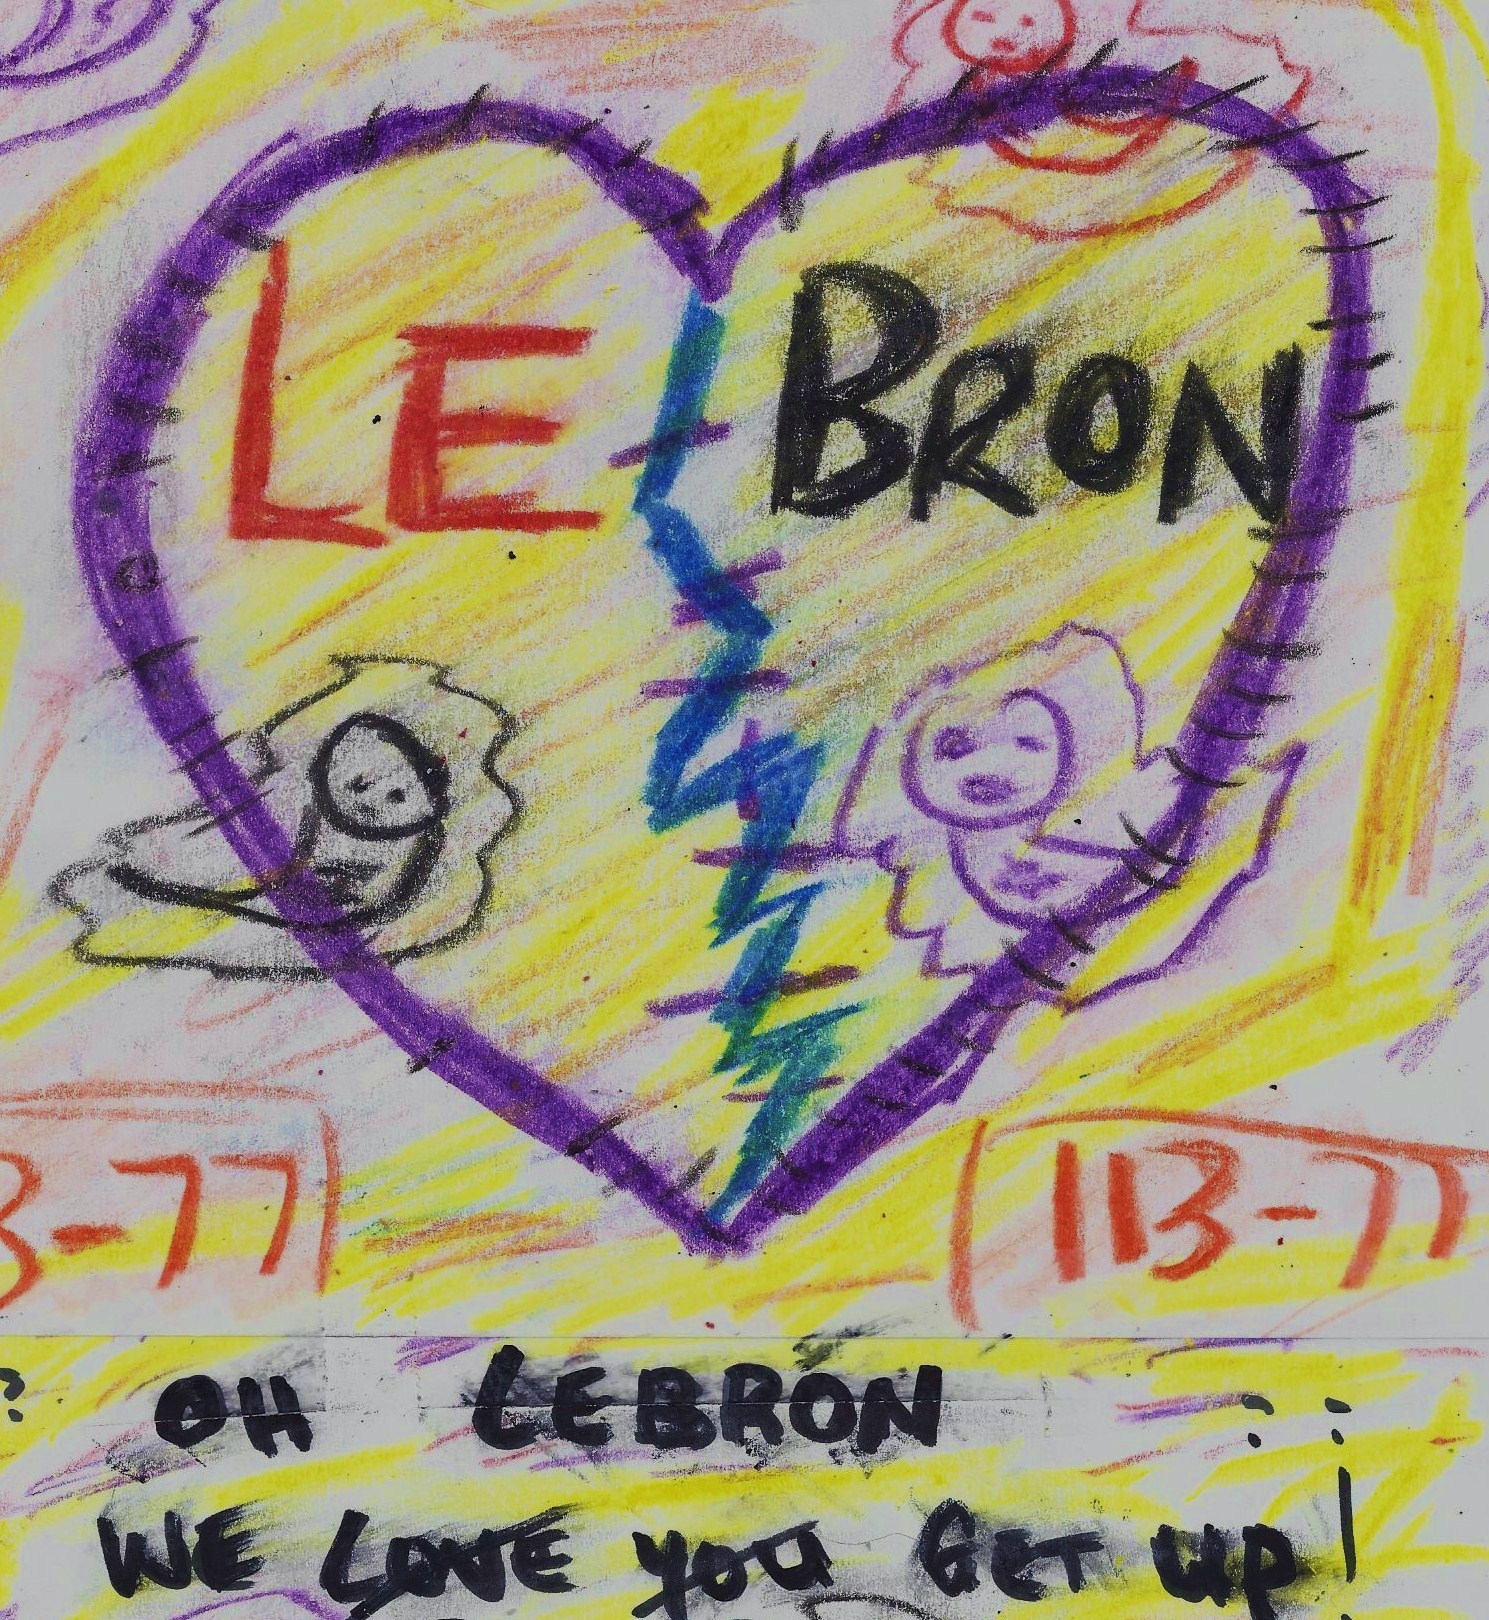 LE BRON
3-77 113-77
OH LEBRON
WE LOVE YOU GET UP!